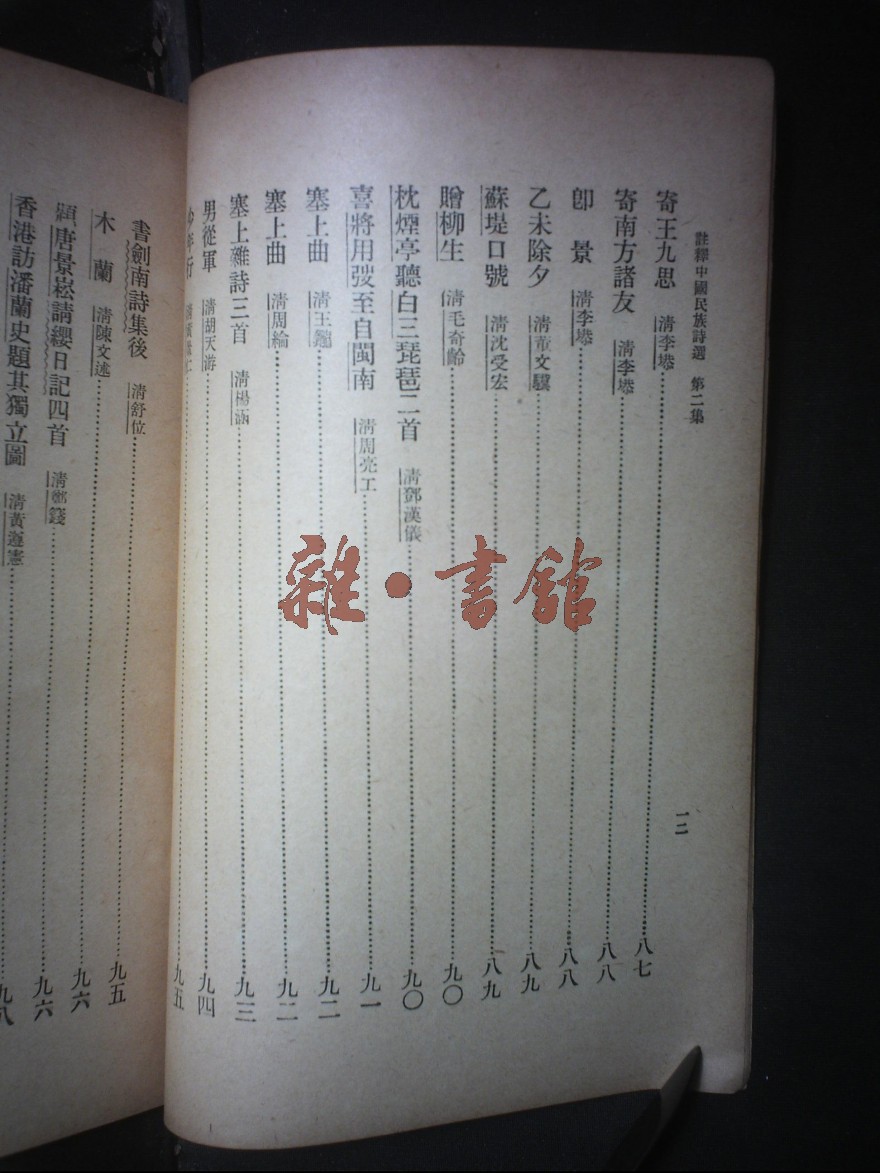 註釋中國民族詩選 第二集
一二
寄王九思 清李塨 八七
寄南方諸友 清李塨 八八
卽景 清李塨 八八
乙未除夕 清董文驥 八九
蘇堤口號 清沈受宏 八九
贈柳生 清毛奇齡 九〇
枕煙亭聽白三琵琶二首 清鄧漢儀 九〇
喜將用弢至自閩南 清周亮工 九一
塞上曲 清王 九二
塞上曲 清周綸 九二
塞上雜詩三首 清楊涵 九三
男從軍 清胡天游 九四
行 九五
書劍南詩集後 清舒位 九五
木蘭 清陳文述 九六
唐景崧請纓日記四首 清 九六
香港訪潘蘭史題其獨立圖 清黃遵憲 九八
雜·書館